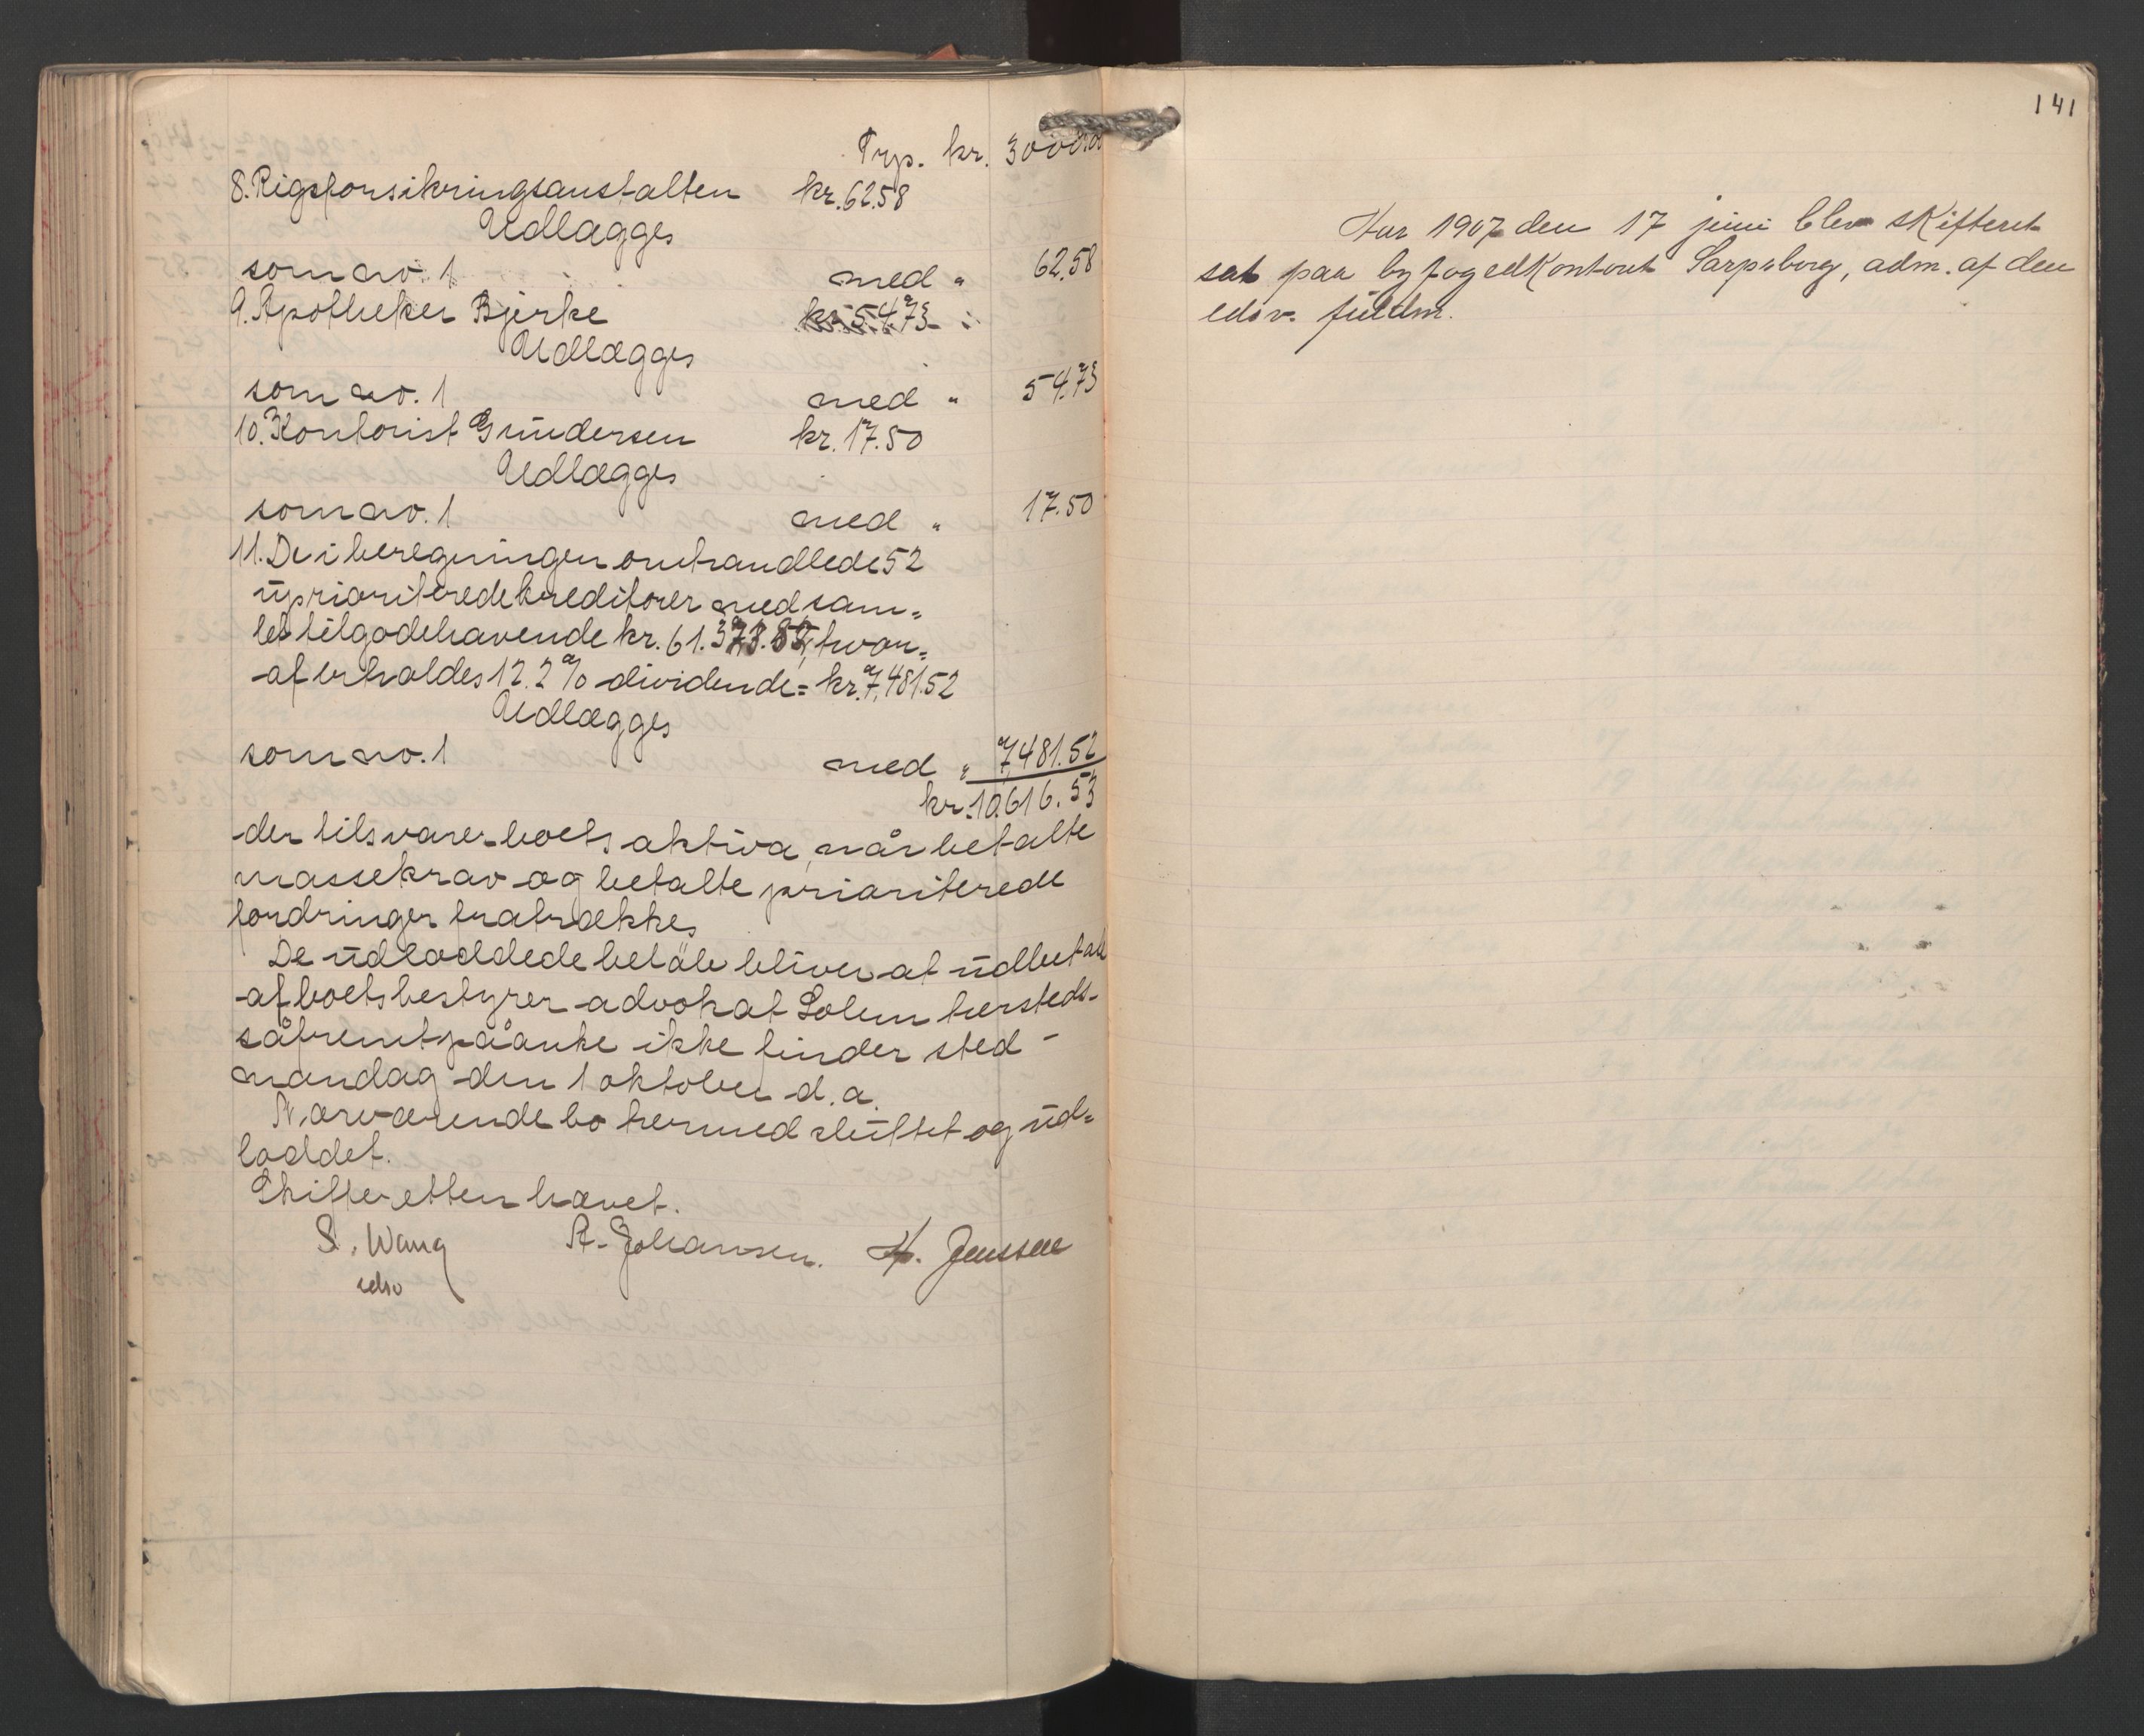 Trp. kr. 3000.20
8. Rigsforsikringsanstalten kr. 62.58
Udlægges
som no. 1 med " 62.58
9. Apotheker Bjerke kr. 54.73
Udlægges
som no. 1 med " 54.73
10. Kontorist Gundersen kr. 17.50
Udlægges
som no. 1 med " 17.50
11. De i beregningen omhandlede 52
uprioriterede kreditorer med sam=
let tilgodehavende kr. 61.373.82, hvor=
af erholdes 12.2 % dividende = kr. 7,481.52
Udlægges
som no. 1 med " 7,481.52
kr. 10,616.53
der tilsvarer boets aktiva, når betalte
massekrav og betalte prioriterede
fordringer fratrækkes
De udloddede beløb bliver at udbetale
af boets bestyrer advokat Solem hersteds -
såfremt påanke ikke finder sted -
mandag den 1 oktober d. a.
Nærværende bo hermed sluttet og ud=
loddet.
Skifteretten hævet.
S. Wang R. Johansen. H. Jenssen
edsv
141
Aar 1907 den 17 juni blev skifteret
sat paa byfogedkontoret Sarpsborg, adm. af den
edsv. fuldm.